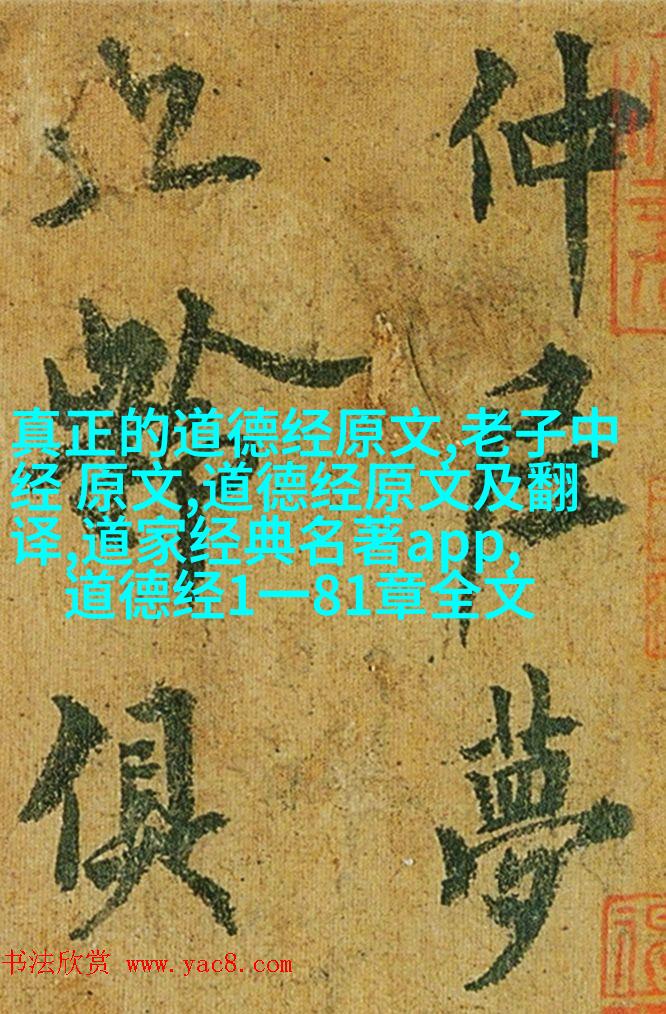 仲尼夢
齡俱
真正的道德经原文,老子中
经 原文,道德经原文及翻
译,道家经典名著app,
道德经1一81章全文
书法欣赏 www.yac8.com